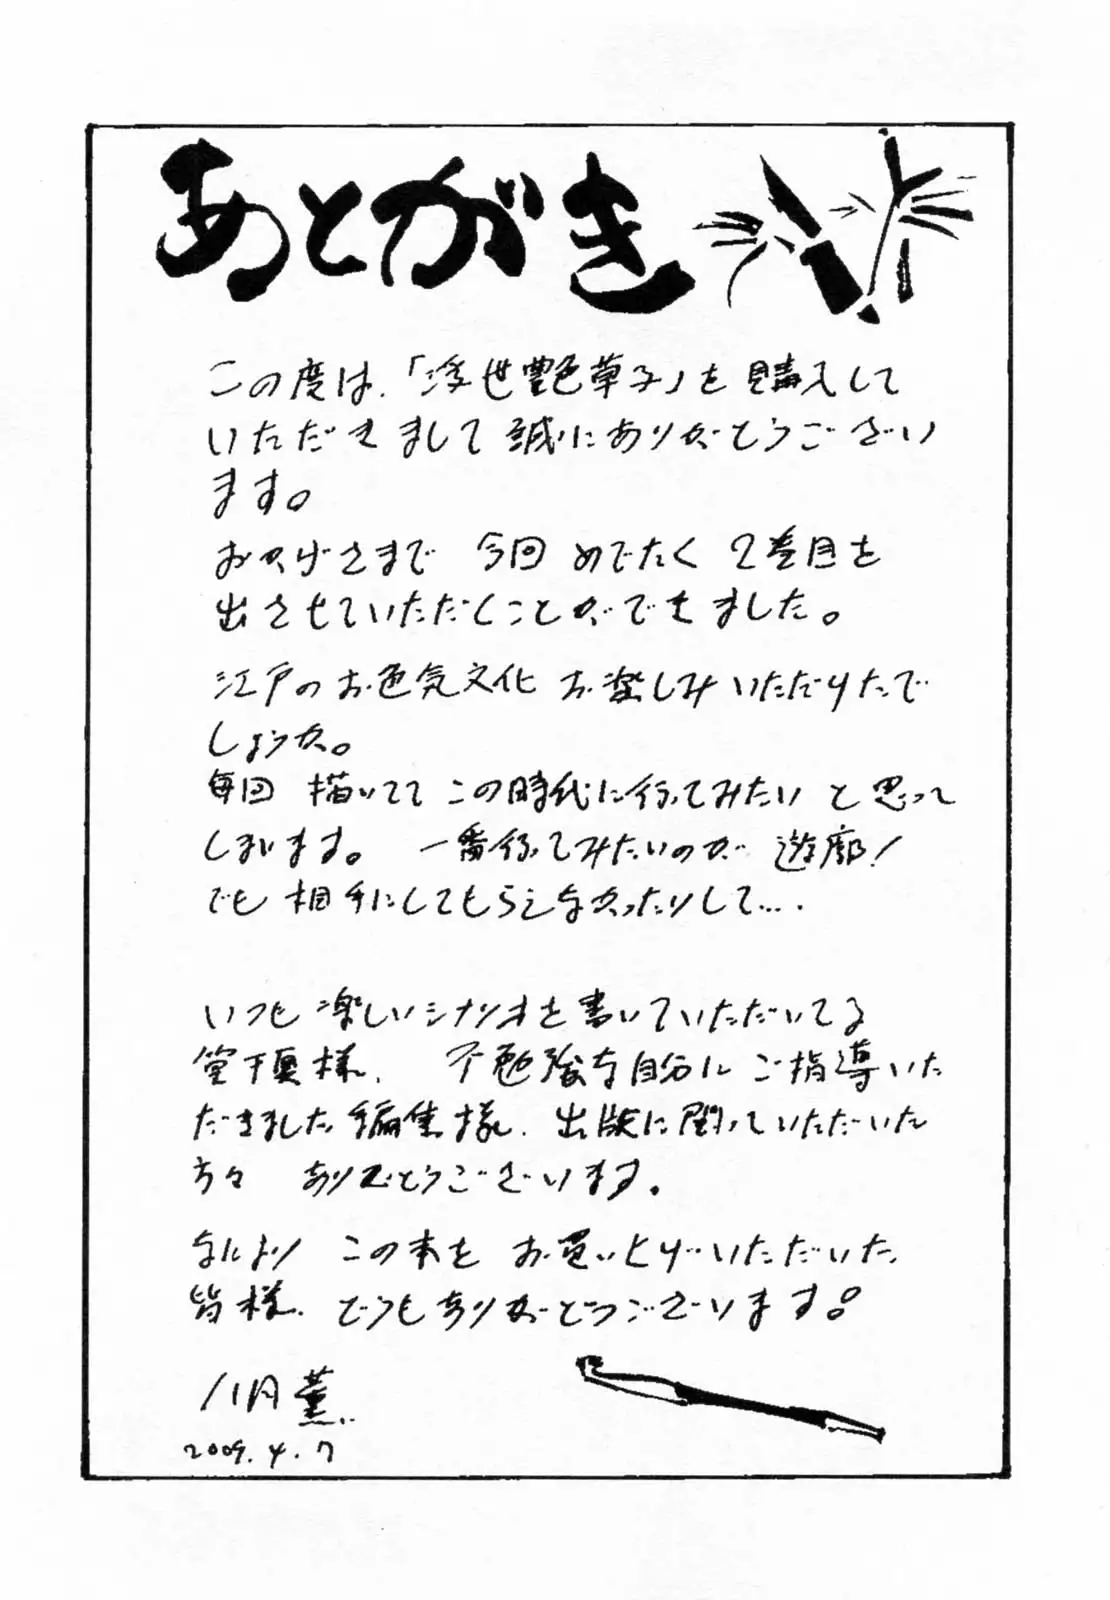 あとがき
この度は、「浮世艶草子」を購入して
いただきまして誠にありがとうござい
ます。
おかげさまで 今回 めでたく 2巻目を
出させていただくことができました。
江戸のお色気文化 お楽しみいただけたで
しょうか。
毎回 描いてて この時代に行ってみたい と思って
しまいます。 一番行ってみたいのが 遊廓!
でも 相手にしてもらえなかったりして….
いつも 楽しいシナリオを書いていただいてる
堂下真様、 不勉強な自分に ご指導いた
だきました編集様、出版に関っていただいた
方々 ありがとうございます。
なにより この本を お買いとげいただいた、
皆様、どうもありがとうございます。
八月薫
2009.4.7